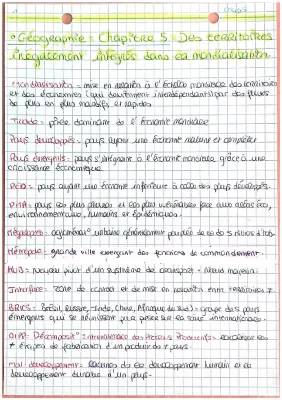 • Géographie : Chapitre 5. Des territoires
inégalement intégrés dans la mondialisation
Mondialisation = mise en relation à l'échelle mondiale des territoires
et des économies (qui deviennent interdépendants) par des flux
de plus en plus massifs et rapides
Triade = pôle dominant de l'économie mondiale
Pays développés = pays ayant une économie mature et complète
Pays émergents = pays s'intégrant à l'économie mondiale grâce à une
croissance économique
= pays ayant une économie inférieure à celle des pays développés.
PMA = pays les plus pauvres et les plus vulnérables face aux aléas éco,
environnementaux, humains et épidémiques.
Mégalopole = agglomérat° urbaine généralement peuplée de
Métropole = grande ville exerçant des fonctions de commandement.
HUB = noyau d'un système de transport
Interface = zone de contact et de mise en relation entre territoires
BRICS = Brésil, Russie, Inde, Chine, Afrique du Sud = groupe de 5 pays
émergents qui se réunissent pour peser sur la scène internationale.
DIPP = Décomposit° Internationale des Process Productifs =
étapes de fabrication d'un produit de + pays.
Mal développement = du développement humain et
développement durable d'un pays.